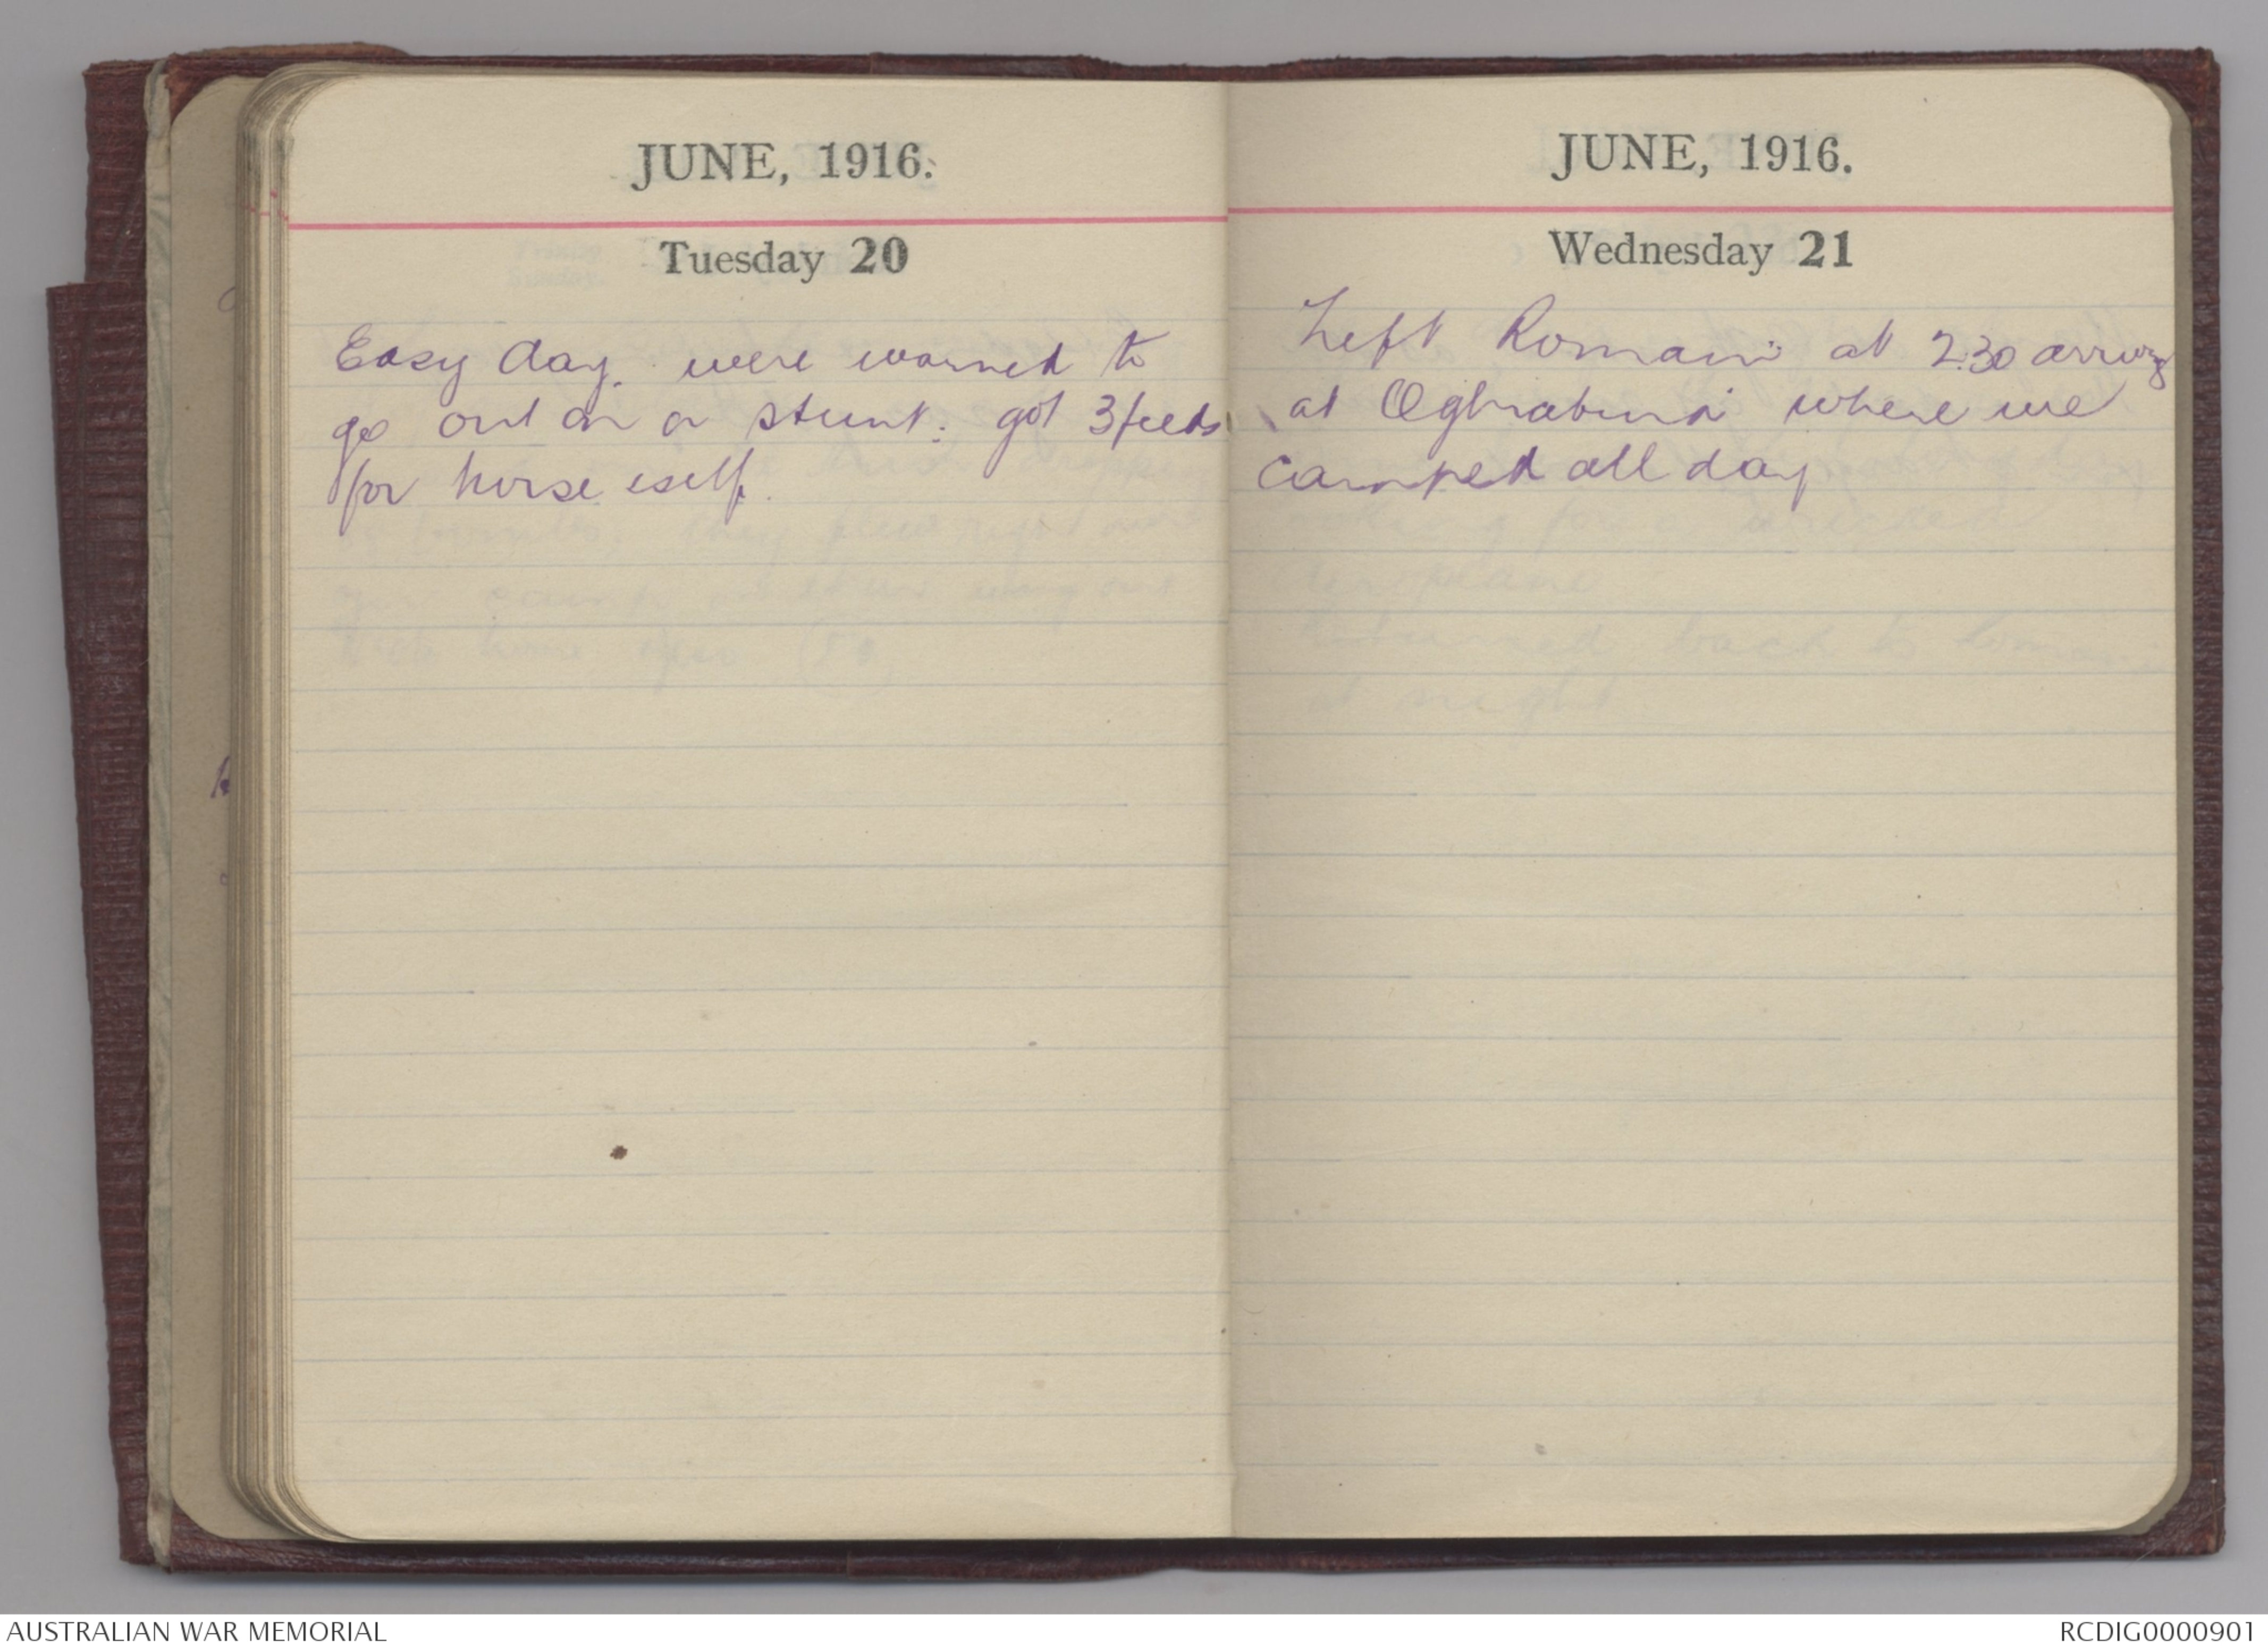 JUNE, 1916.
Tuesday 20
Easy day. were warned to
go out on a stunt. got 3 feeds
for horse & self.
JUNE, 1916.
Wednesday 21
Left Romani at 2.30 arriving
at Oghratina where we
camped all day
AUSTRALIAN WAR MEMORIAL
RCDIG0000901